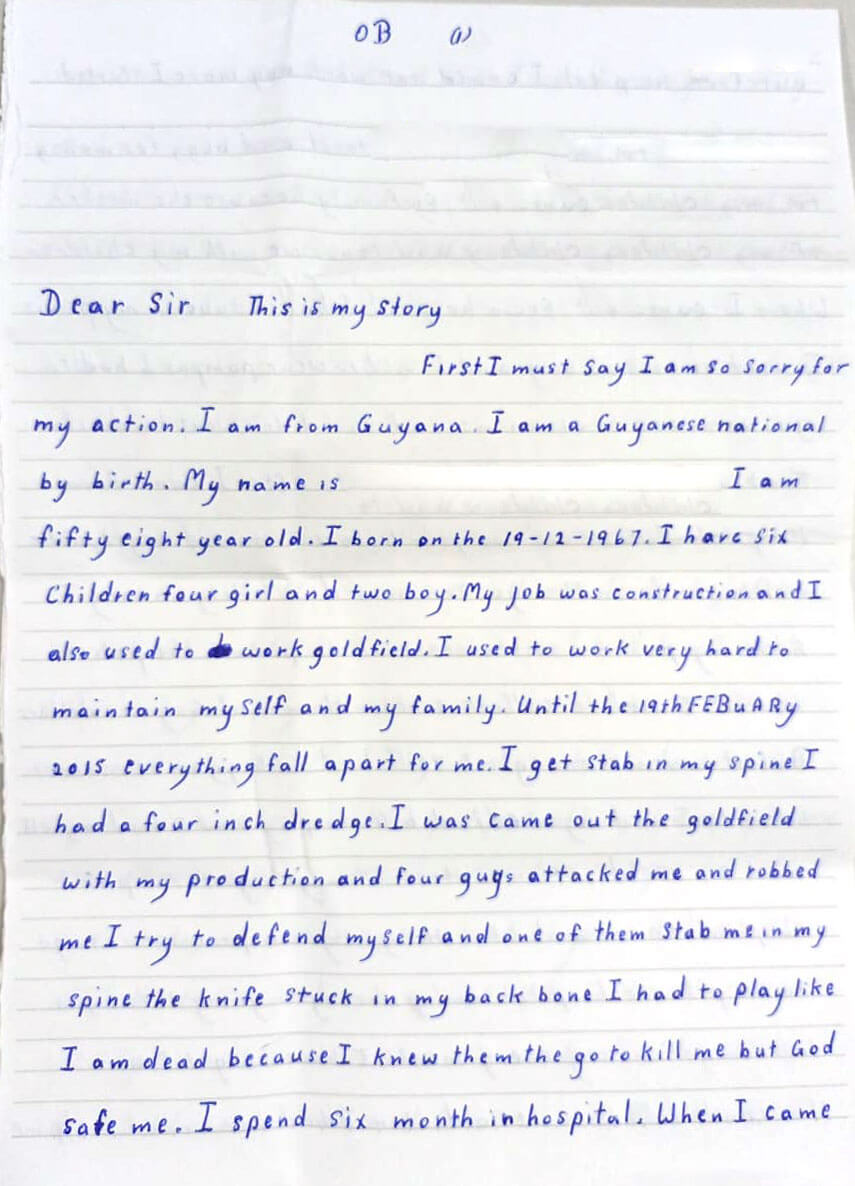 OB 1)
Dear Sir This is my story
First I must say I am so sorry for
my action. I am from Guyana. I am a Guyanese national
by birth. My name is I am
fifty eight year old. I born on the 19-12-1967. I have six
Children four girl and two boy. My job was construction and I
also used to work goldfield. I used to work very hard to
maintain myself and my family. Until the 19th FEBuARy
2015 everything fall apart for me. I get stab in my spine I
had a four inch dredge. I was came out the goldfield
with my production and four guys attacked me and robbed
me I try to defend myself and one of them stab me in my
spine the knife stuck in my back bone I had to play like
I am dead because I knew them the go to kill me but God
safe me. I spend six month in hospital. When I came